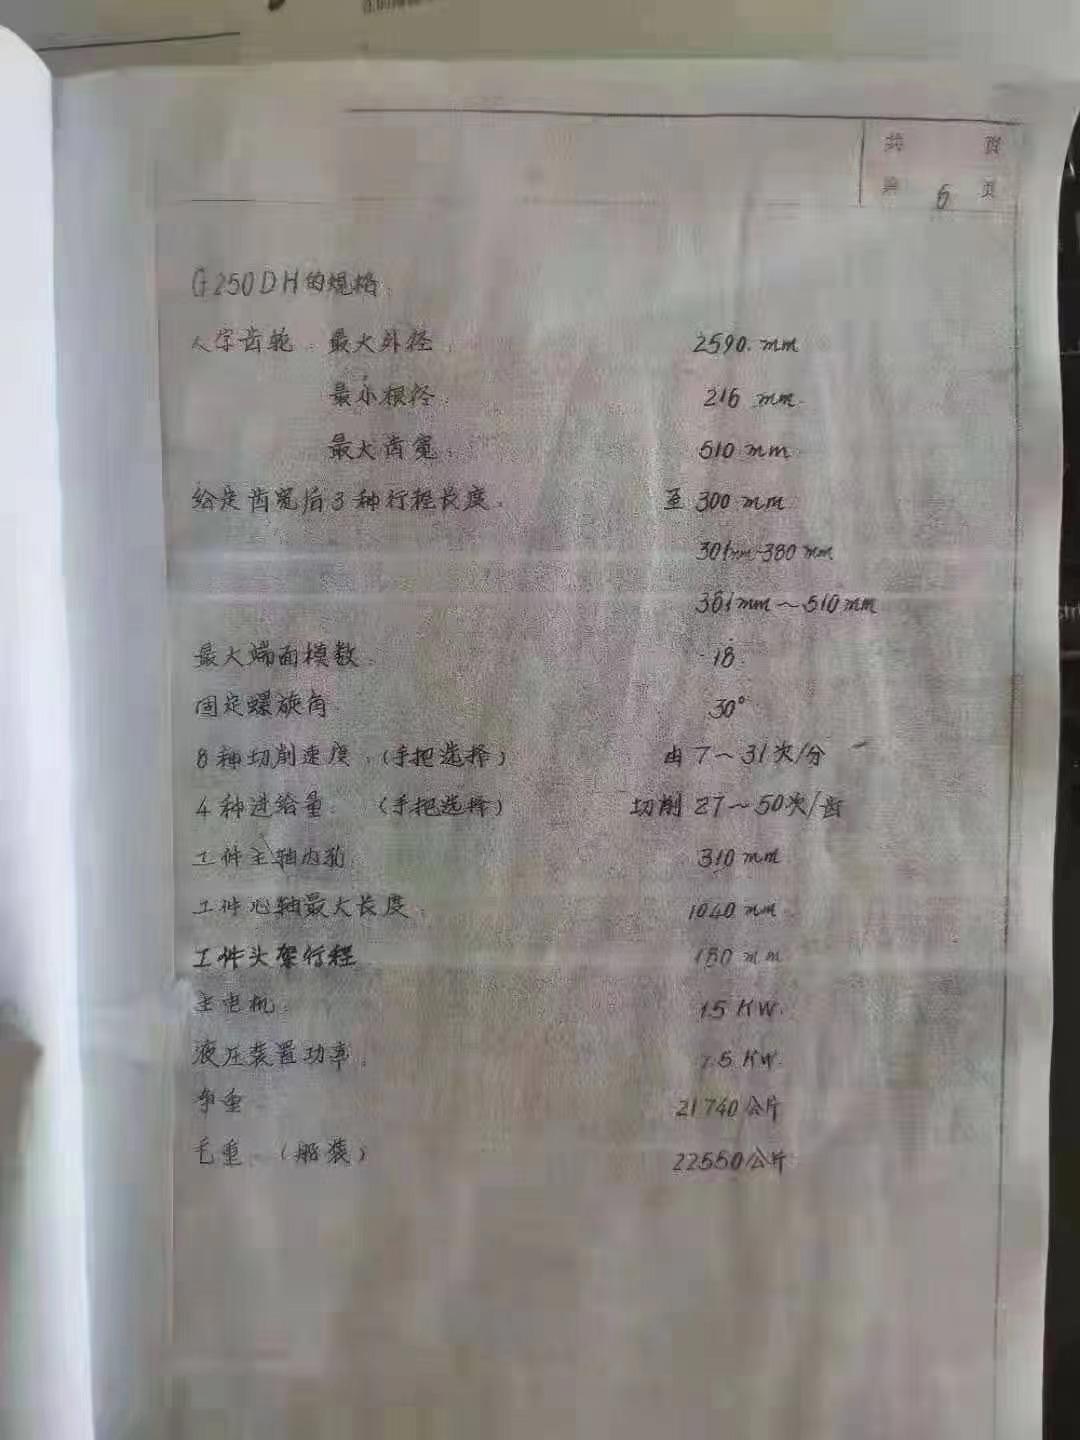 共 页
第 6 页
G250DH的规格:
人字齿轮: 最大外径: 2590. mm
最小根径: 216 mm.
最大齿宽: 510 mm
给定齿宽后3种行程长度: 至 300 mm
301mm-380 mm
381mm～510mm
最大端面模数: 18.
固定螺旋角: 30°
8种切削速度:(手把选择) 由 7～31次/分
4种进给量: (手把选择) 切削 27～50次/齿
工件主轴内孔: 310 mm
工件心轴最大长度: 1040 mm
工件头架行程 mm
主电机: 15 KW.
液压装置功率: KW.
净重 21740公斤
毛重:(船装) 22550公斤